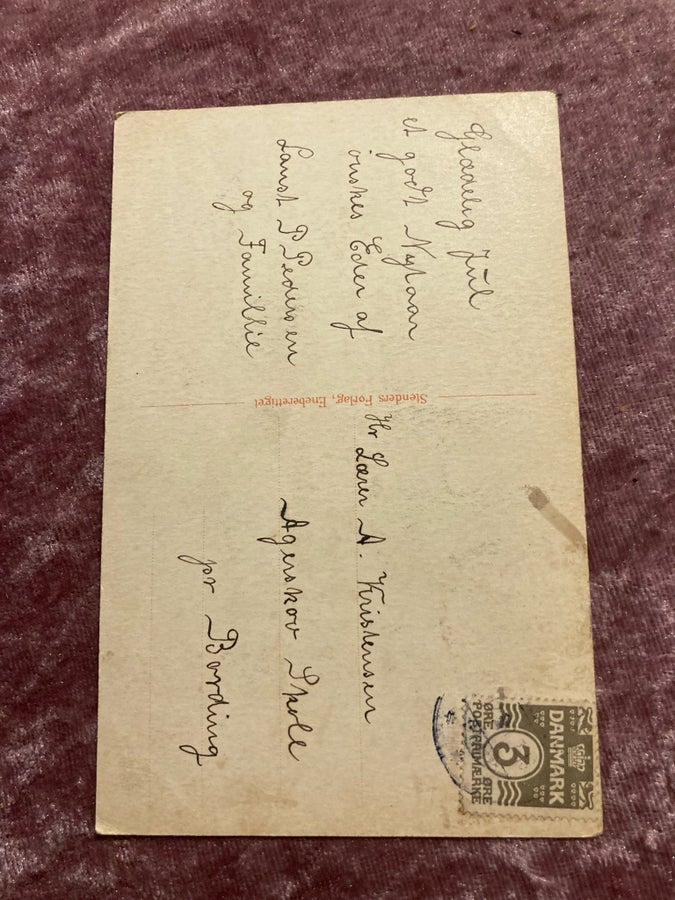 Glædelig Jul
et godt Nytaar
ønskes Eder af
Lanst P Pedersen
og Famillie
Stenders Forlag, Eneberettiget
Hr Lærer A. Kristensen
Agerskov Skole
pr Bording
DANMARK
3
ØRE ØRE
POSTFRIMÆRKE